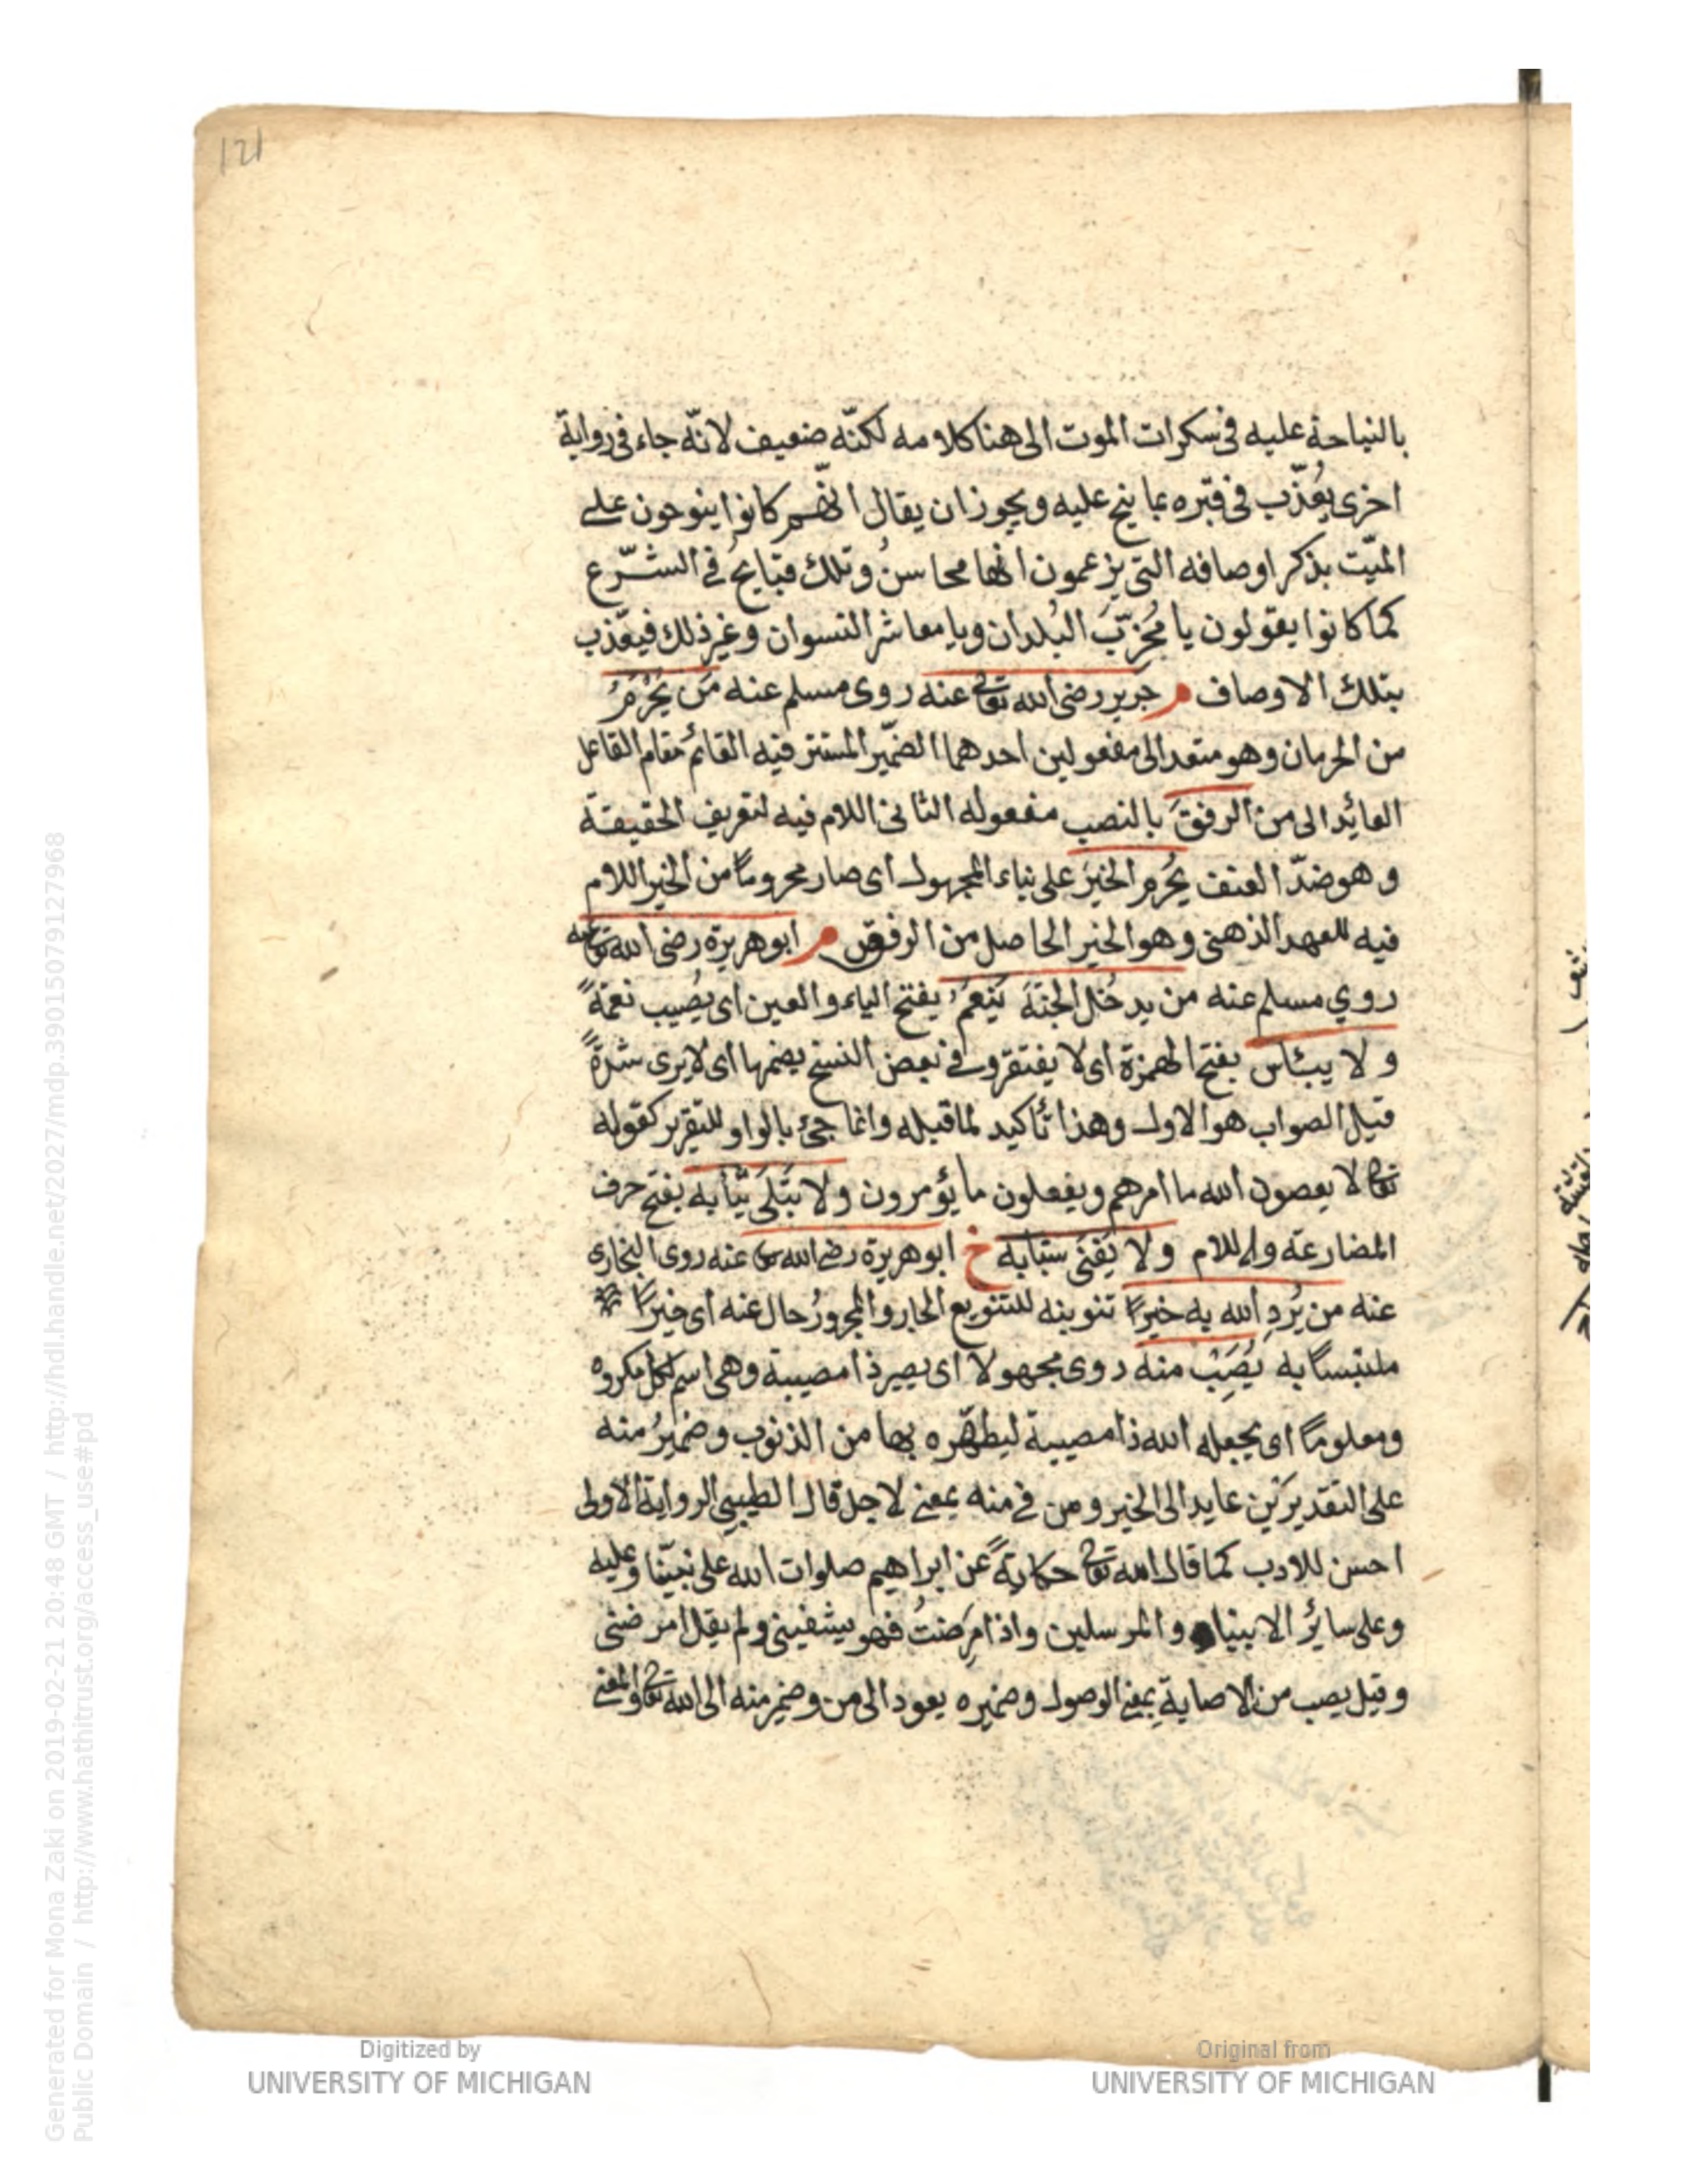 121
بالنياحة عليه في سكرات الموت الى هنا كلامه لكنّه ضعيف لانّه جاء في رواية
اخرى يُعذّب في قبره بما ينح عليه ويجوز ان يقال انّهم كانوا ينوحون على
الميّت بذكر اوصافه التي يزعمون انها محاسنُ وتلك قبايحُ في الشّرع
كما كانوا يقولون يا مُخرّبَ البُلدان ويا معاشر النسوان وغير ذلك فيعذّب
بتلك الاوصاف م جرير رضي الله تعالى عنه روى مسلم عنه مَن يُحْرَمُ
من الحرمان وهو متعد الى مفعولين احدهما الضمير المستتر فيه القائم مقام الفاعل
العائد الى من الرفقَ بالنصب مفعوله الثاني اللام فيه لتعريف الحقيقة
وهو ضدّ العنف يُحْرم الخيرَ على بناء المجهول اى صار محروماً من الخير اللام
فيه للعهد الذهني وهو الخير الحاصل من الرفق م ابو هريرة رضي الله تعالى عنه
روي مسلم عنه من يدخُل الجنّةَ يَنعَمُ بفتح الياء والعين اى يُصيب نعمةً
ولا يبأس بفتح الهمزة اى لا يفتقر وفي بعض النسخ بضمها اى لا يرى شدّةً
قيل الصواب هو الاول وهذا تأكيد لما قبله وانما جئ بالواو للتقرير كقوله
تعالى لا يعصون الله ما امرهم ويفعلون ما يؤمرون ولا تَبَلَى ثيابه بفتح حرف
المضارعة واللام ولا يَفنَى شبابه خ ابو هريرة رضي الله تعالى عنه روى البخارى
عنه من يُرِدِ الله به خيراً تنوينه للتنويع الجار والمجرورُ حال عنه اى خيراً
ملتبساً به يُصَِبْ منه روى مجهولا اى يصير ذا مصيبة وهي اسم لكل مكروه
ومعلوماً اى يجعله الله ذا مصيبة ليطهّره بها من الذنوب وضميرُ منه
على التقديرَين عايد الى الخير ومن في منه بمعنى لاجل قال الطيبي الرواية الاولى
احسن للادب كما قال الله تعالى حكايةً عن ابراهيم صلوات الله على نبيّنا وعليه
وعلى سايرُ الانبياء والمرسلين واذا مرِضتُ فهو يشفيني ولم يقل امرضني
وقيل يصب من الاصابة بمعنى الوصول وضميره يعود الى من وضمير منه الى الله تعالى والمعنى
Digitized by
UNIVERSITY OF MICHIGAN
Original from
UNIVERSITY OF MICHIGAN
Generated for Mona Zaki on 2019-02-21 20:48 GMT / http://hdl.handle.net/2027/mdp.39015079127968
Public Domain / http://www.hathitrust.org/access_use#pd